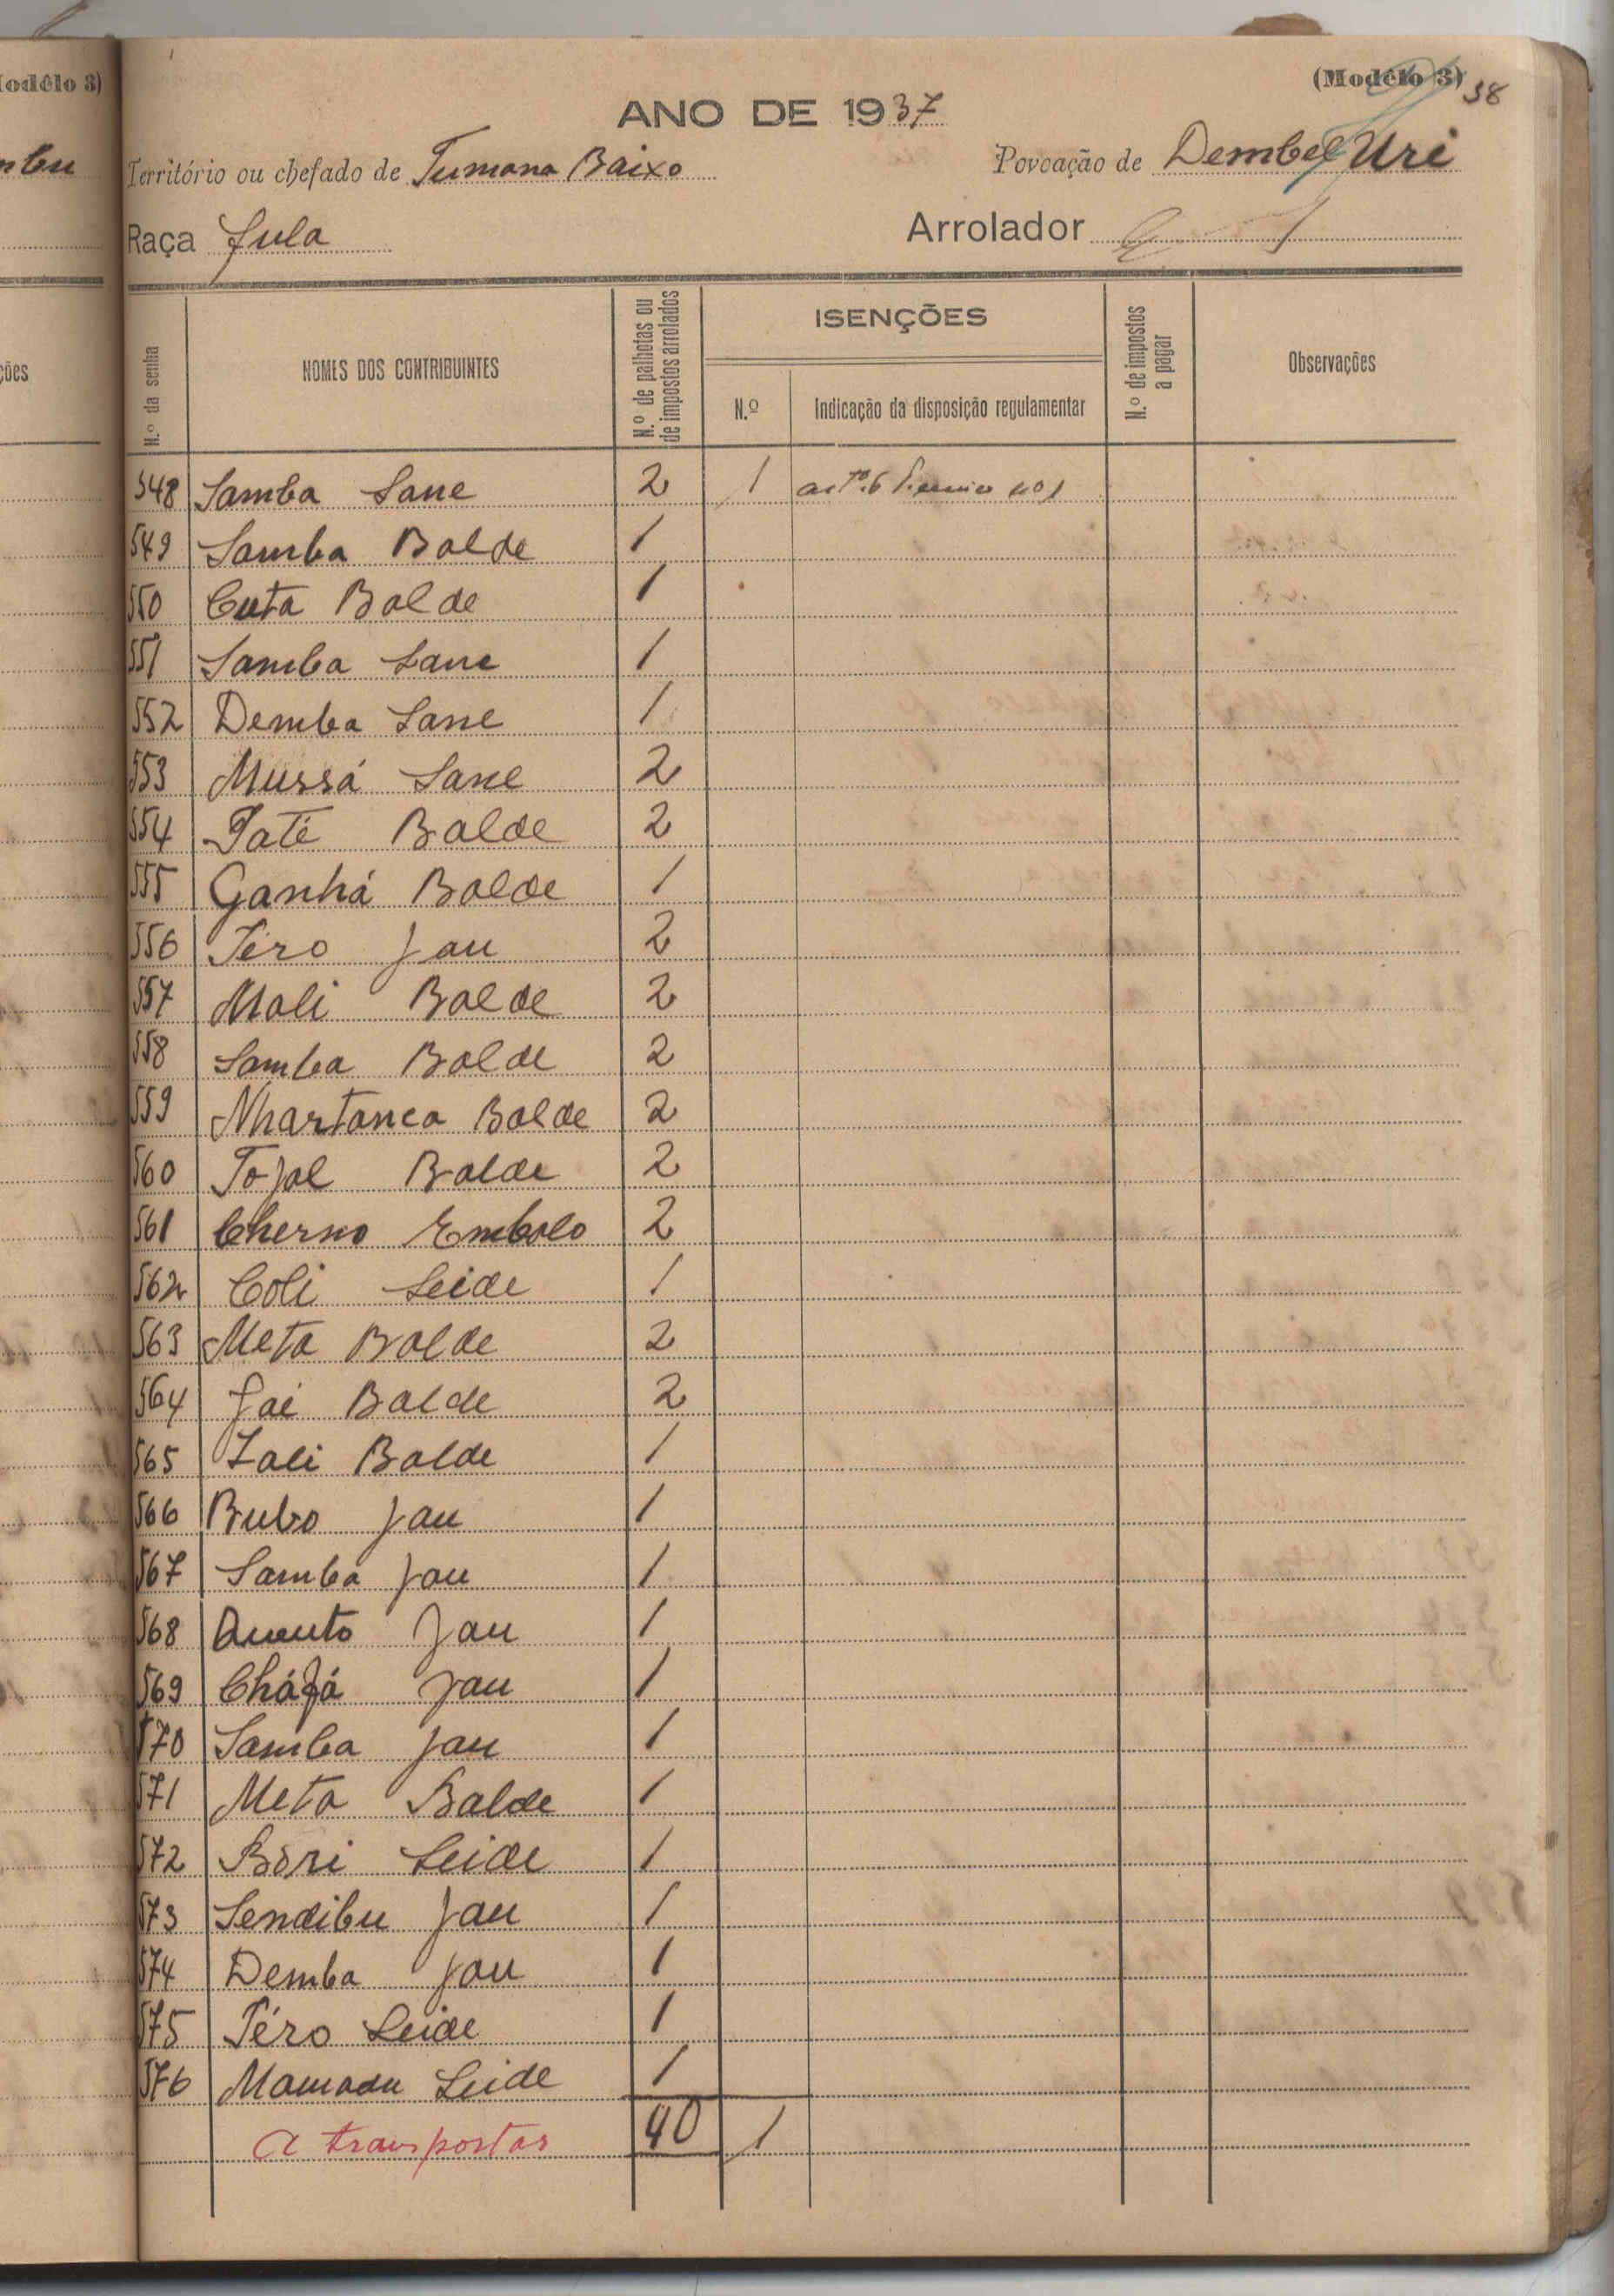 (Modêlo 3) 58
ANO DE 1937
Território ou chefado de Tumana Baixo Povoação de Dembel Uri
Raça fula Arrolador
N.º da senha
NOMES DOS CONTRIBUINTES
N.º de palhotas ou de impostos arrolados
ISENÇÕES
N.º
Indicação da disposição regulamentar
N.º de impostos a pagar
Observações
548 Samba Sane 2 1 artº.6
549 Samba Balde 1
550 Cuta Balde 1
551 Samba Sane 1
552 Demba Sane 1
553 Mussá Sane 2
554 Paté Balde 2
555 Ganhá Balde 1
556 Jau 2
557 Mali Balde 2
558 Samba Balde 2
559 Nhartanca Balde 2
560 Tojal Balde 2
561 Cherno Embalo 2
562 Coli Seide 1
563 Meta Balde 2
564 Balde 2
565 Balde 1
566 Bubo Jau 1
567 Samba Jau 1
568 Jau 1
569 Jau 1
570 Samba Jau 1
571 Meta Balde 1
572 Bori Seide 1
573 Sendibu Jau 1
574 Demba Jau 1
575 Seide 1
576 Mamadu Seide 1
A transportar 40 1
odêlo 3)
mbu
ções